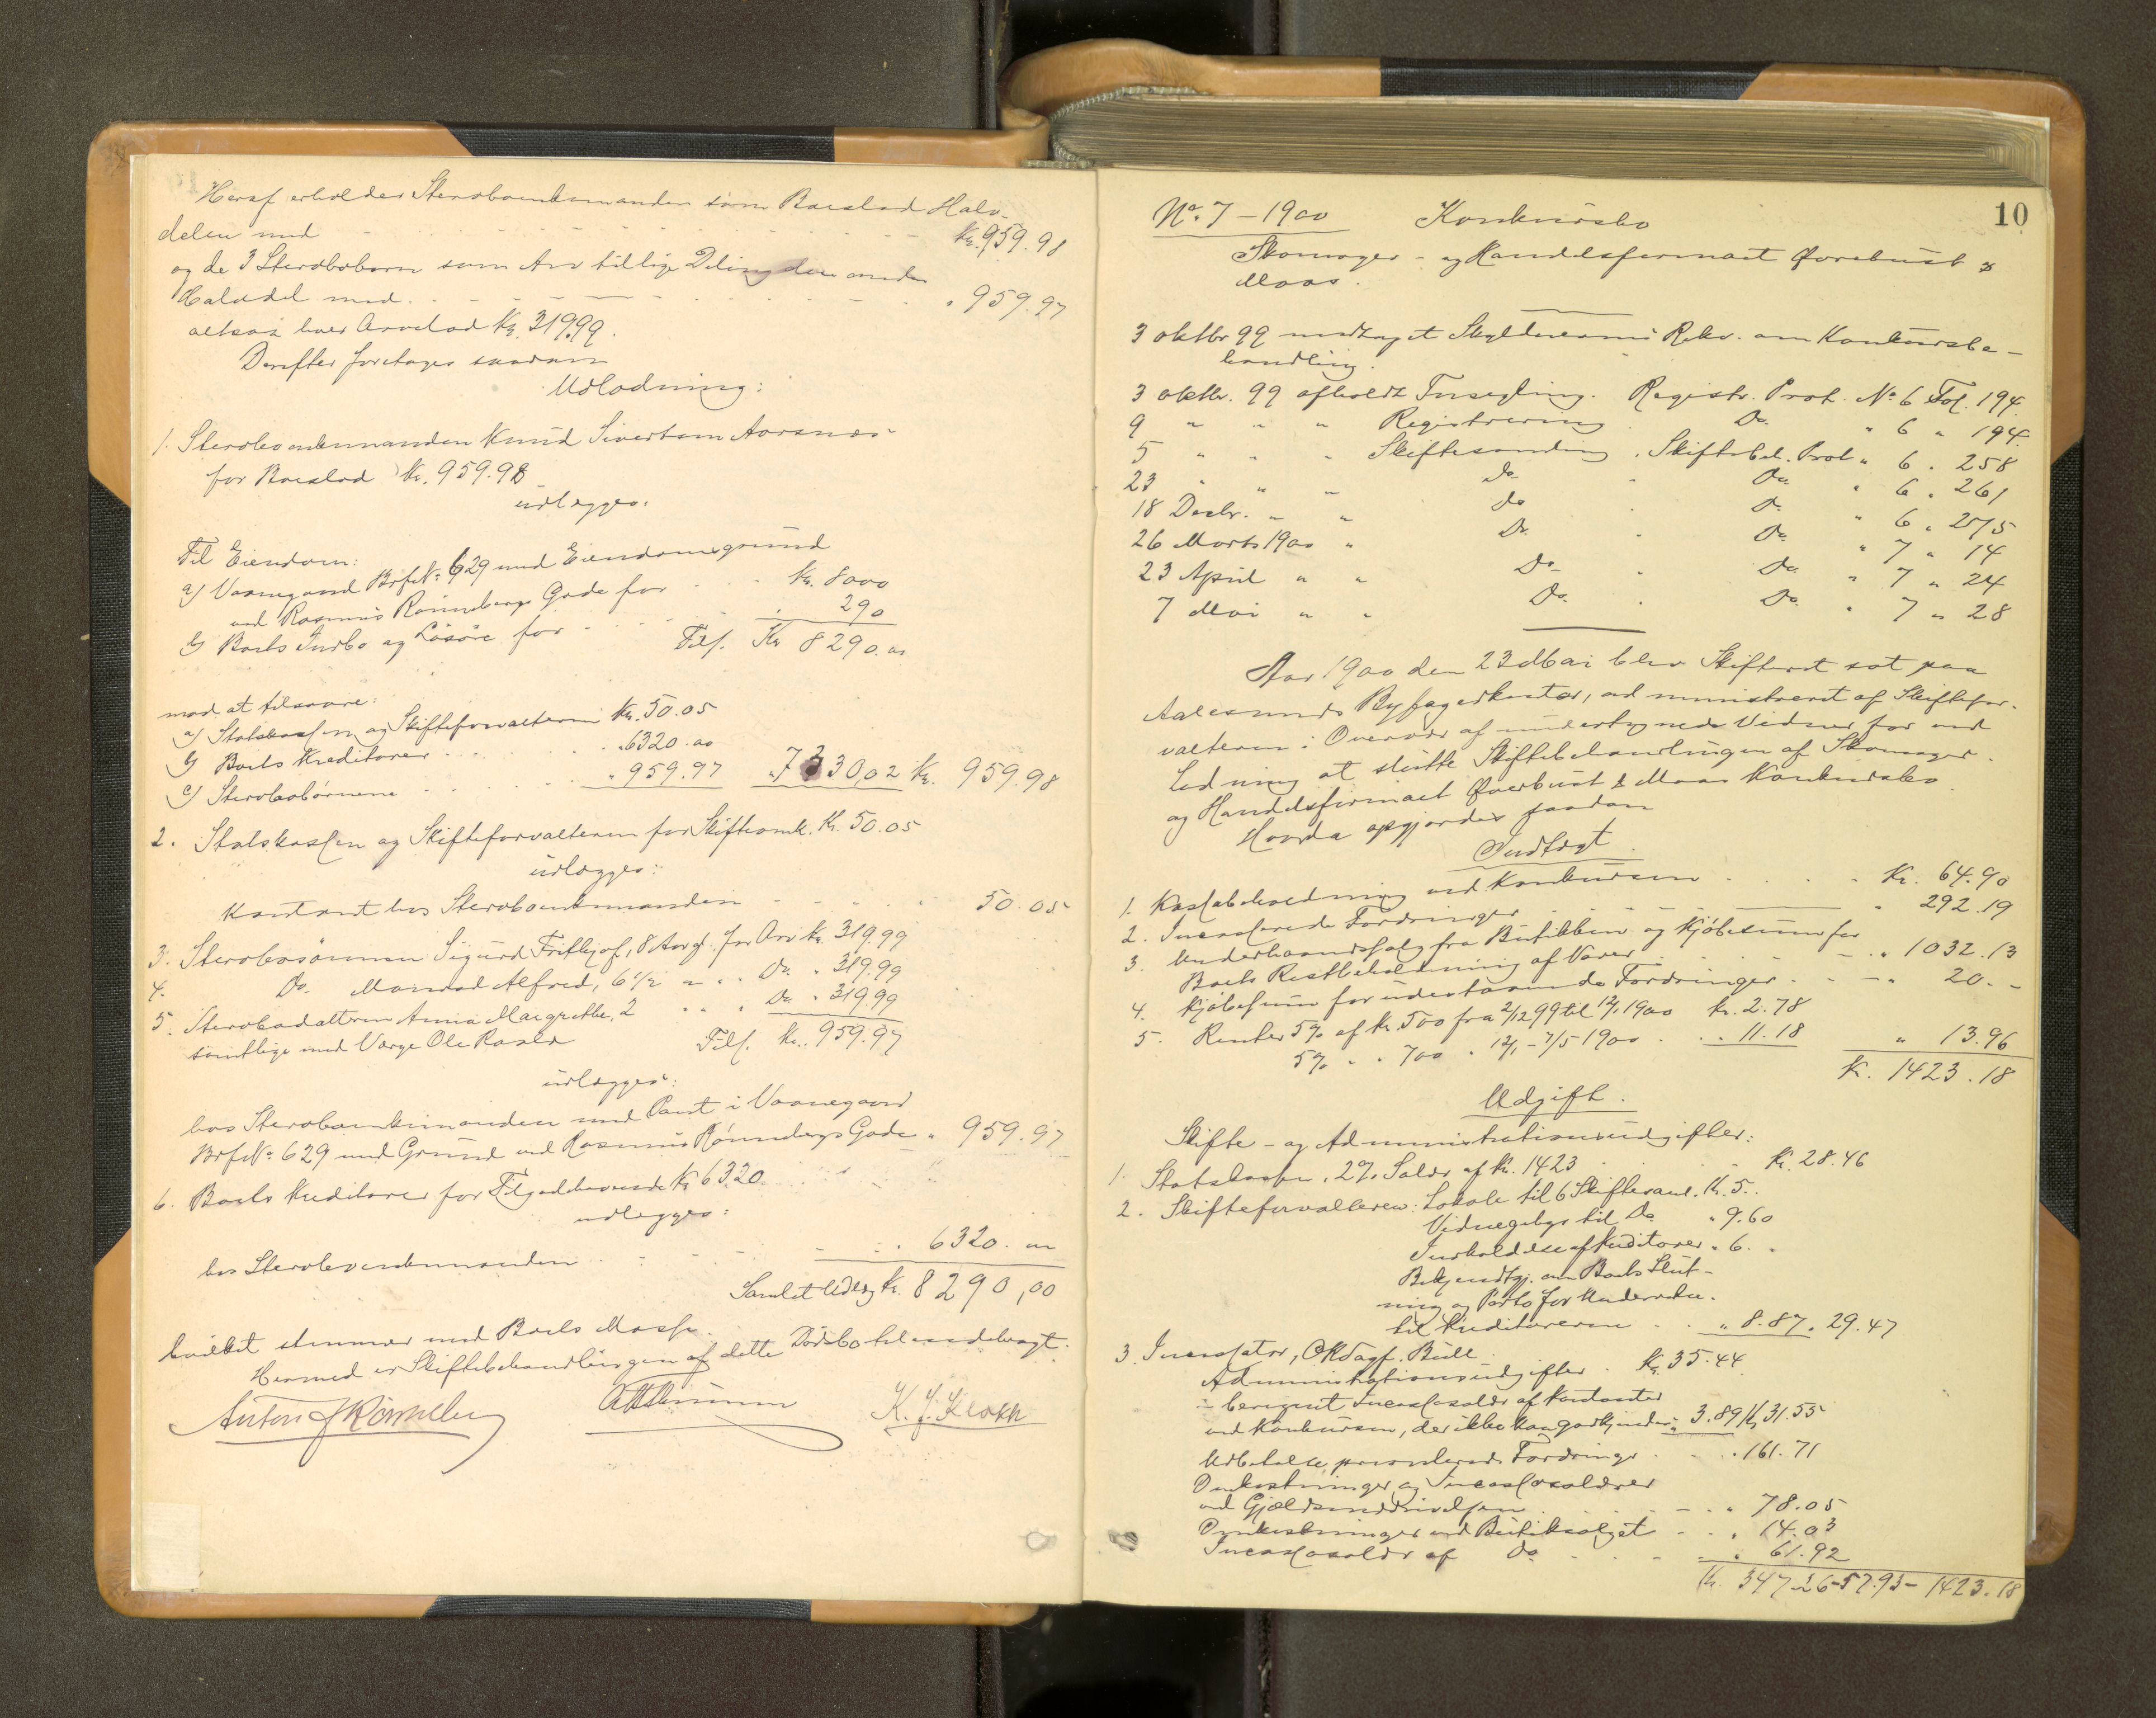 Heraf erholder Stervboenkemanden som Boeslod Halv-
delen med - - - Kr. 959.98
og de 3 Stervbobørn som Arv tillige Deling den anden
Halvdel med - - - " 959.97
altsaa hver Arvelod Kr. 319.99.
Derefter foretages saadan
Udlodning:
1. Stervboenkemanden Knud Sivertsen Aarsnes
for Boeslod Kr. 959.98
udlægges:
Til Eiendom:
a) Vaaningen Brf. No 629 med Eiendomsgrund
ved Rasmus Rønnebergs Gade for - - Kr. 8000
b) Boets Indbo og Løsøre for - - - " 290
Tils. Kr 8290.00
mod at tilsvare:
a) Statskassen og Skifteforvalteren Kr. 50.05
b) Boets Kreditorer . . . " 6320.00
c) Stervbobørnene . . . " 959.97 " 7330,02 Kr. 959.98
2. Statskassen og Skifteforvalteren for Skifteomk. Kr. 50.05
udlægges:
Kontant hos Stervboenkemanden - - - 50.05
3. Stervbosønnen Sigurd Frithjof, 8 Aar gl. for Arv Kr. 319.99
4. Do. Alfred, 6 1/2 " " Do. " 319.99
5. Stervbodatteren Anna Margrethe, 2 " " Do " 319.99
samtlige med Værge Ole Tils. Kr. 959.97
udlægges:
hos Stervboenkemanden med Pant i Vaanegaard
Brf. No 629 med Grund ved Rasmus Rønnebergs Gade " 959.97
6. Boets Kreditorer for Tilgodehavende Kr 6320.
udlægges:
hos Stervboenkemanden - - - " 6320.00
Samlet Udlæg Kr. 8290,00
hvilket stemmer med Boets Masse.
Hermed er Skiftebehandlingen af dette Dødsbo tilendebragt.
Anton J Rønneberg K. J. Krohn
10
No. 7 - 1900 Konkursbo
Skomager- og Handelsfirmaet Øvrebust &
Moas.
3 oktbr 99 modtaget Skyldnernes Rekv. om Konkursbe-
handling.
3 oktbr. 99 afholdt Forsegling. Registr. Prot. No 6 Fol. 194.
9 " " " Registrering Do. " 6 " 194.
5 " " " Skiftesamling. Skiftebeh. Prot " 6 " 258
23 " " " Do Do " 6 " 261
18 Decbr. " " Do Do " 6 " 275
26 Marts 1900 " Do Do " 7 " 14
23 April " " Do Do " 7 " 24
7 Mai " " Do. Do. " 7 " 28
Aar 1900 den 23 Mai blev Skifteret sat paa
Aalesunds Byfogedkontor, administreret af Skiftefor-
valteren i Overvær af undertegnede Vidner for ved
Lodning at slutte Skiftebehandlingen af Skomager-
og Handelsfirmaet Øvrebust & Moas Konkursbo.
Hvorda opgjordes saadan
Indtægt.
1. Kassabeholdning ved Konkursen . . . Kr. 64.90
2. Incasserede Fordringer - - - " 292.19
3. Underhaandssalg fra Butikken og Kjøbesum for
Boets Restbeholdning af Varer . . . " 1032.13
4. Kjøbesum for udestaaende Fordringer . . " 20. -
5. Renter 5% af Kr. 500 fra 2/12 99 til 12/1 1900 Kr. 2.78
5% " " 700 " 12/1 - 7/5 1900 . . " 11.18 " 13.96
Kr. 1423.18
Udgift.
Skifte- og Administrationsudgifter:
1. Statskassen, 2% Salær af Kr. 1423 . . . Kr. 28.46
2. Skifteforvalteren: Lokale til 6 Skiftesaml. Kr. 5..
Vidnegebyr til Do " 9.60
Indkaldelse af Kreditorer " 6. "
Bekjendtgj. om Boets Slut-
ning og Porto for Underretn.
til Kreditorerne - . " 8.87 " 29.47
3. Incassator, O.R.sagf. Bull
Administrationsudgifter . Kr. 35.44
÷ beregnet Incassosalær af Kontanter
ved Konkursen, der ikke kan godkjendes " 3.89 Kr 31.55
Udbetalte prioriterede Fordringer . . " 161.71
Omkostninger og Incassosalærer
ved Gjældsinddrivelsen . . . " 78.05
Omkostninger ved Butiksalget . . " 14.03
Incassosalær af Do . . . " 61.92
Kr. 347.26-57.93- 1423.18